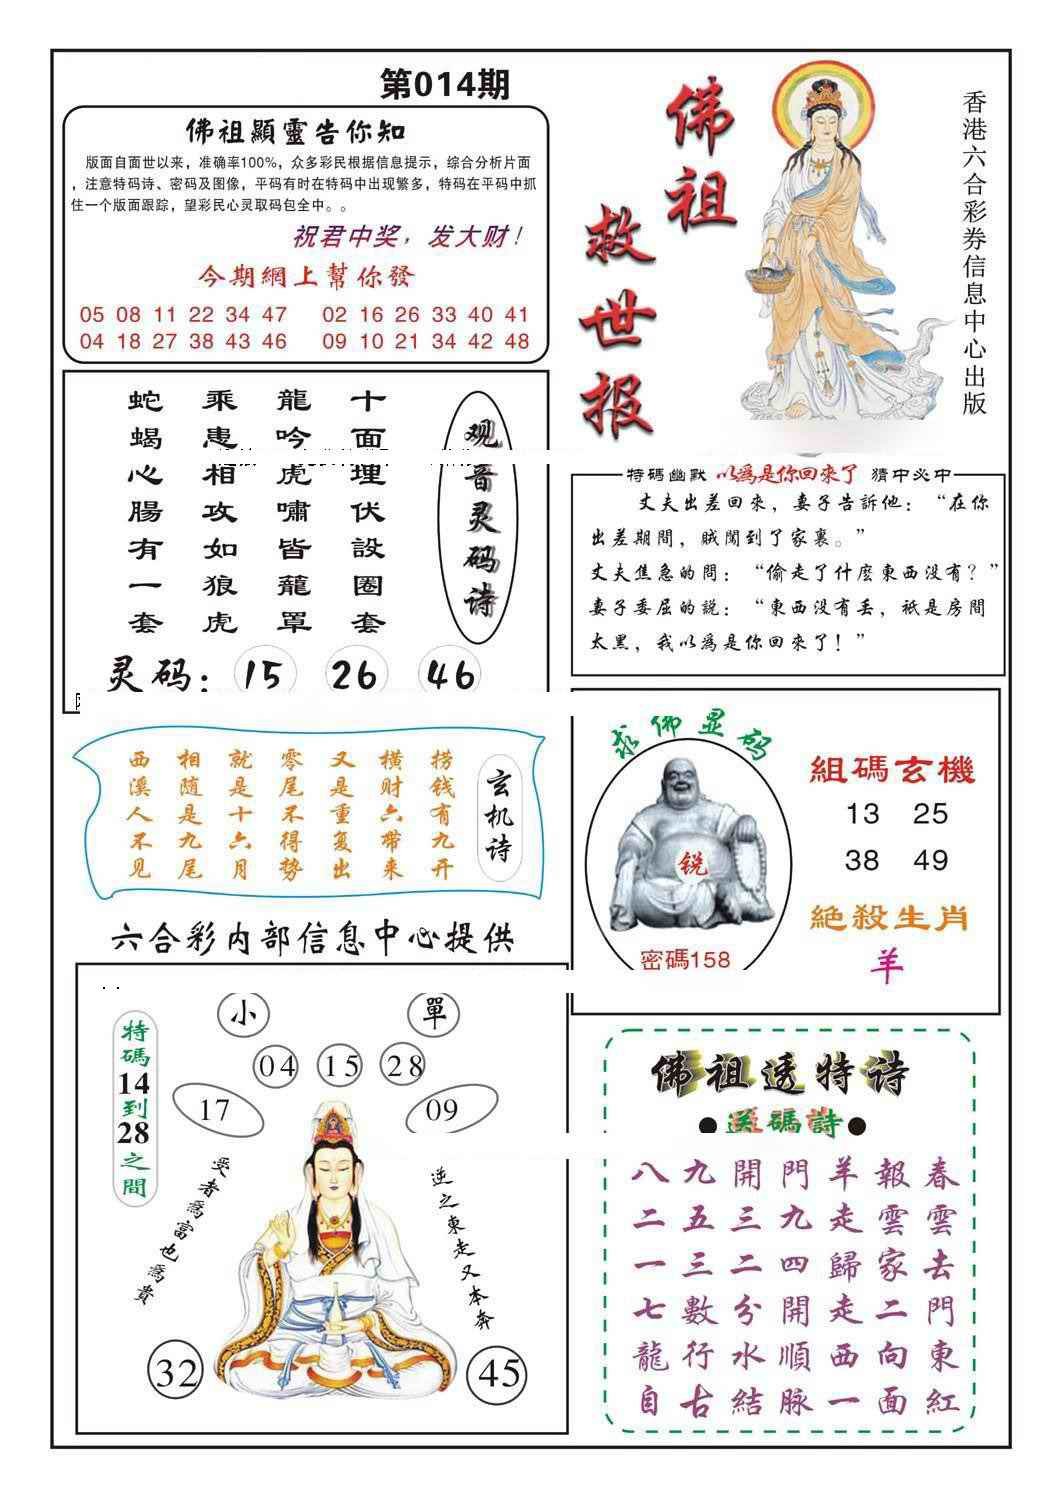 第014期
佛祖顯靈告你知
版面自面世以来，准确率100%，众多彩民根据信息提示，综合分析片面
，注意特码诗、密码及图像，平码有时在特码中出现繁多，特码在平码中抓
住一个版面跟踪，望彩民心灵取码包全中。。
祝君中奖，发大财！
今期網上幫你發
05 08 11 22 34 47 02 16 26 33 40 41
04 18 27 38 43 46 09 10 21 34 42 48
佛祖
救世报
香港六合彩券信息中心出版
观音灵码诗
十面埋伏設圈套
龍吟虎嘯皆籠罩
乘患相攻如狼虎
蛇蝎心腸有一套
灵码：15 26 46
特碼幽默 以為是你回來了 猜中必中
丈夫出差回來，妻子告訴他：“在你
出差期間，賊闖到了家裏。”
丈夫焦急的問：“偷走了什麽東西没有？”
妻子委屈的説：“東西没有丢，祇是房間
太黑，我以為是你回來了！”
玄机诗
捞钱有九开
横财六帶来
又是重复出
零尾不得勢
就是十六月
相随是九尾
西溪人不见
求佛显码
锐
密碼158
組碼玄機
13 25
38 49
絕殺生肖
羊
六合彩内部信息中心提供
特碼14到28之間
小 單
04 15 28
17 09
受者為富也為貴
逆之東走又本奔
32 45
佛祖透特诗
送碼詩
八九開門羊報春
二五三九走雲雲
一三二四歸家去
七數分開走二門
龍行水順西向東
自古結脉一面紅